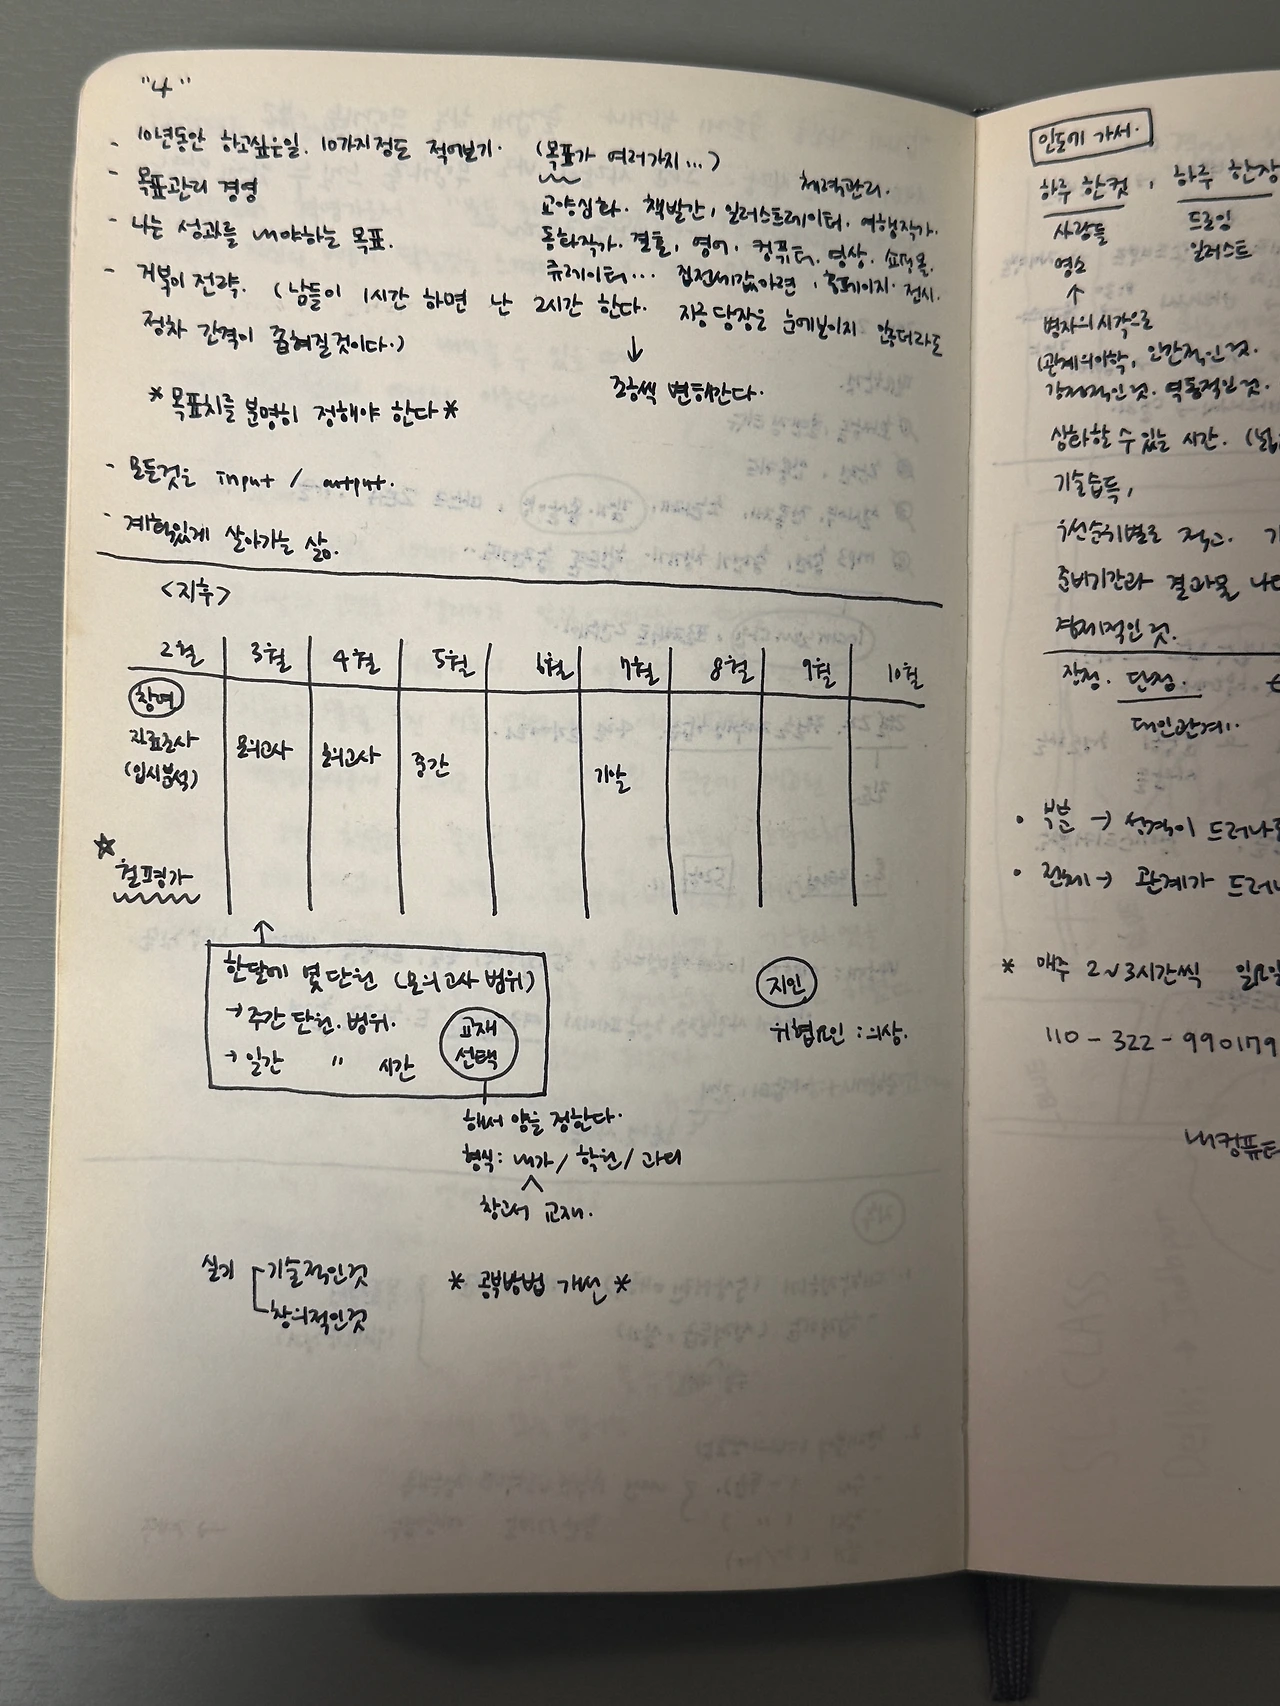 "4"
- 10년동안 하고싶은일. 10가지정도 적어보기. (목표가 여러가지...)
체력관리.
- 목표관리 경영
교양심화. 책발간, 일러스트레이터. 여행작가.
- 나는 성과를 내야하는 목표.
동화작가. 결혼, 영어, 컴퓨터, 영상, 쇼핑몰.
큐레이터... 집전세값마련, 홈페이지. 전시.
- 거북이 전략. (남들이 1시간 하면 난 2시간 한다. 지금 당장은 눈에보이지 않더라도
점차 간격이 좁혀질것이다.)
↓
조금씩 변해간다.
* 목표치를 분명히 정해야 한다 *
- 모든것을 input / output.
- 계획있게 살아가는 삶.
<지후>
2월 3월 4월 5월 6월 7월 8월 9월 10월
자료조사 모의고사 모의고사 중간 기말
(입시분석)
☆
월평가
↑
한달에 몇단원 (모의고사 범위)
→ 주간 단원. 범위.
→ 일간 " 시간
교재
선택
해서 양을 정한다.
형식: 내가 / 학원 / 과외
참고서 교재.
지인
위협요인 : 의상.
실기 기술적인것
창의적인것
* 공부방법 개선 *
인도에 가서.
하루 한컷, 하루 한장
사람들 드로잉
명소 일러스트
↑
병자의 시각으로
(관계의 미학, 인간적인것.
감정적인것. 역동적인것.
상화할 수 있는 시간.
기술습득,
우선순위별로 적고.
준비기간과 결과물
경제적인것.
장점. 단점.
대인관계.
• 부분 → 성격이
• 전체 → 관계가
* 매주 2~3시간씩
110 - 322 - 990179
내컴퓨터